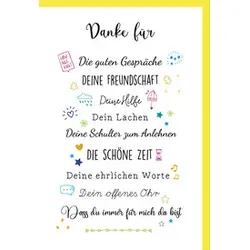 Danke für
Die guten Gespräche
DEINE FREUNDSCHAFT
Deine Hilfe
Dein Lachen
Deine Schulter zum Anlehnen
DIE SCHÖNE ZEIT
Deine ehrlichen Worte
Dein offenes Ohr
Dass du immer für mich da bist